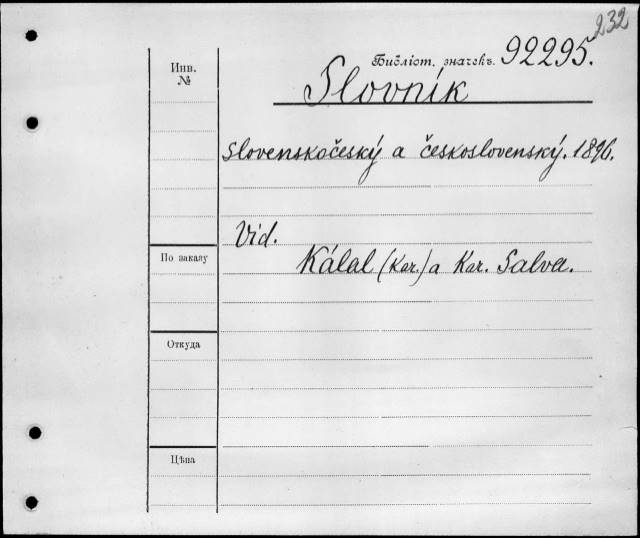 232
Инв.
№
Библіот. значекъ. 92295.
Slovník
Slovenskočeský a československý. 1896.
Vid.
По заказу
Kálal (Kar.) a Kar. Salva.
Откуда
Цѣна